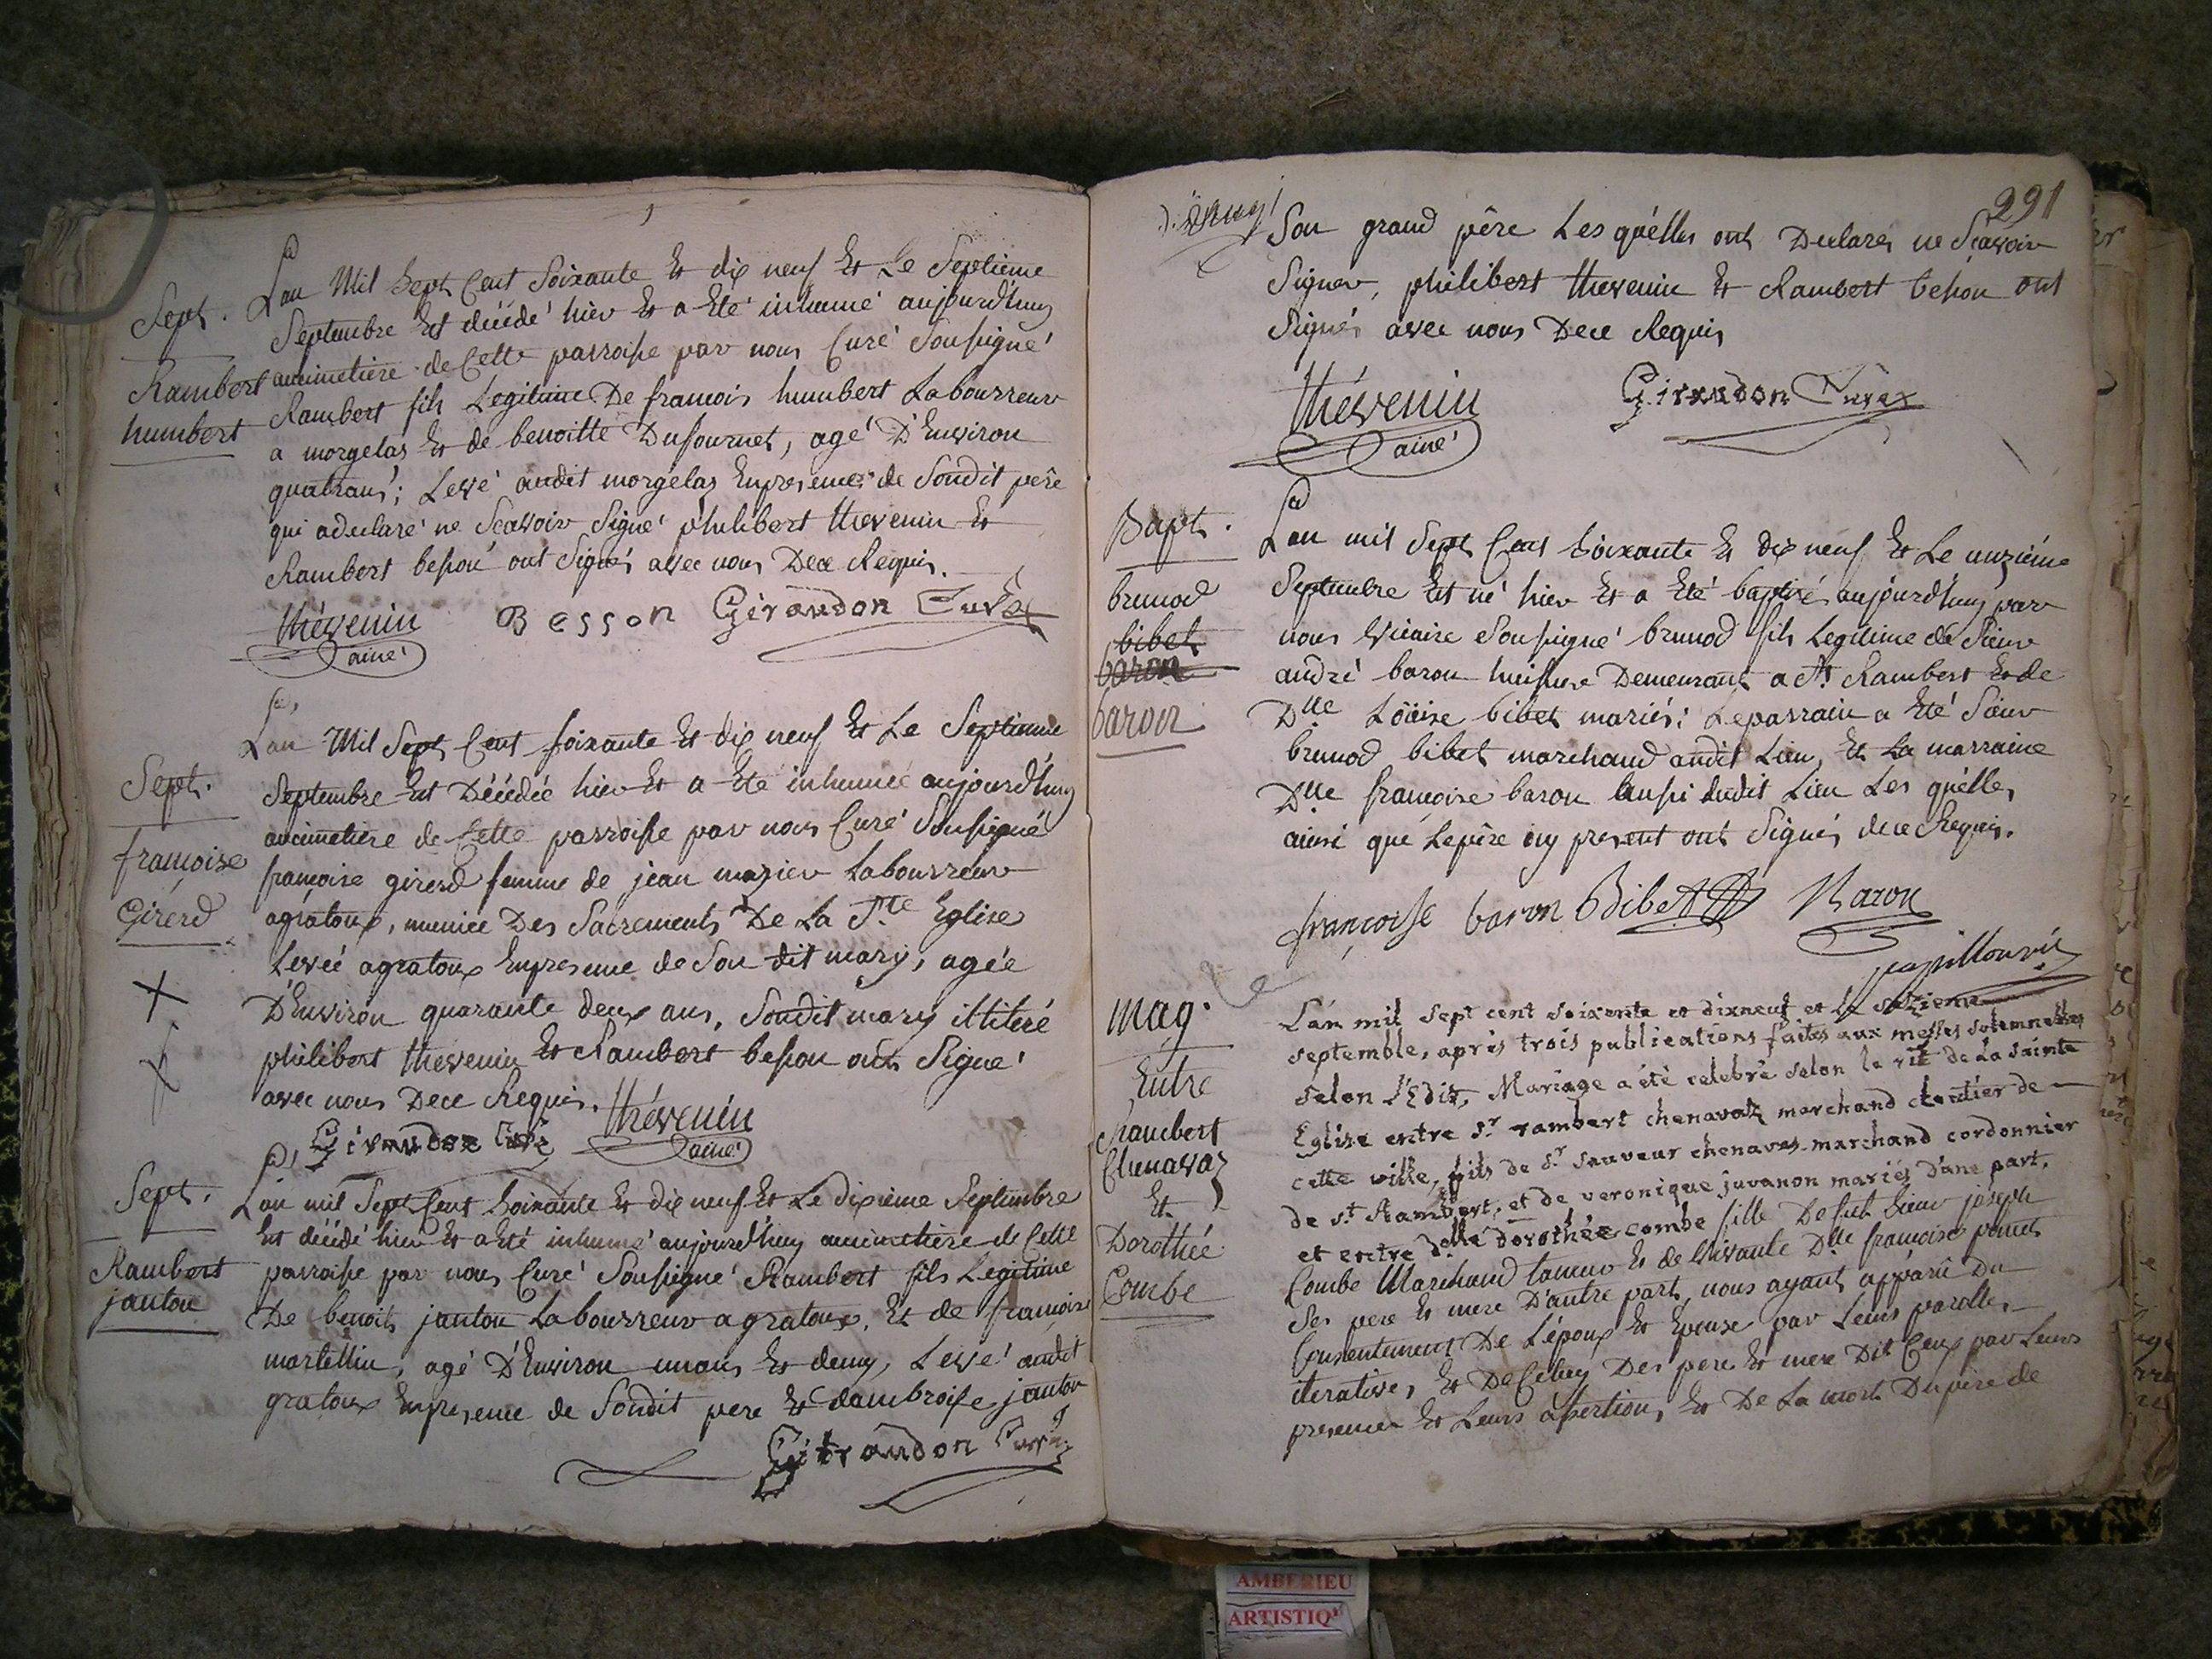 Sept.
Rambert
humbert
Lan Mil Sept Cent Soixante Et dix neuf Et Le Septieme
Septembre Est décédé hier Et a Eté inhumé aujourd'huy
aucimetiere de Cette parroisse par nous Curé Soussigné
Rambert fils Legitime De francois humbert Laboureur
a morgelas Et de benoitte Dufournet, agé D'Environ
quatrans; Levé audit morgelas Enpresence de Sondit père
qui adeclaré ne Scavoir Signé philibert thevenin Et
Rambert besson ont Signés avec nous Dece Requis.
thévenin
ainé
Besson
Girandon Curé
Sept.
françoise
Girerd
Lan Mil Sept Cent soixante Et dix neuf Et Le Septieme
Septembre Est Décédée hier Et a Eté inhumée aujourd'huy
aucimetiere de Cette parroisse par nous Curé Soussigné
françoise girerd femme de jean mazier Laboureur
agratoux, munie Des Sacrements De La Ste Eglise
Levée agratoux Enpresence de Son dit mary, agée
D'Environ quarante deux ans, Sondit mary illiteré
philibert thevenin Et Rambert besson ont Signé
avec nous Dece Requis.
thévenin
ainé
Girandon Curé
Sept.
Rambert
janton
Lan mil Sept Cent Soixante Et dix neuf Et Le dixième Septembre
Est décédé hier Et a Eté inhumé aujourd'huy aucimetiere de Cette
parroisse par nous Curé Soussigné Rambert fils Legitime
De benoit janton Laboureur agratoux, Et de françoise
martellin, agé D'Environ unans Et demy, Levé audit
gratoux Enpresence de Sondit pere Et dambroise janton
Girandon Curé
291
Son grand père Les quélles ont Declarés ne Scavoir
Signer, philibert thevenin Et Rambert besson ont
Signés avec nous Dece Requis
thévenin
ainé
Girandon Curé
Bapt.
brunod
bibet
baron
baron
Lan mil Sept Cent Soixante Et dix neuf Et Le unzième
Septembre Est né hier Et a Eté baptisé aujourd'huy par
nous Vicaire Soussigné brunod fils Legitime de Sieur
andré baron huissier Demeurant a St Rambert Et de
Dlle Loüise bibet mariés; Leparrain a Eté Sieur
brunod bibet marchand audit Lieu, Et La marraine
Dlle françoise baron aussi dudit Lieu Les quélles
ainsi que Lepère icy present ont Signés dece Requis.
françoise baron Bibet Baron
mag.
Entre
Rambert
Chenavaz
Et
Dorothée
Combe
L'an mil sept cent soixente et dixneuf et le sezieme
septemble, après trois publications faites aux messes solemnelles
selon l'Edit, Mariage a été celebré selon le rit de la sainte
Eglise entre sr rambert chenavaz marchand
de
cette ville, fils de sr sauveur chenavas marchand cordonnier
de st Rambert, et de veronique juvanon mariés d'une part,
et entre delle dorothée combe fille De feu Sieur joseph
Combe Marchand taneur Et de Vivante Dlle françoise
Ses pere Et mere D'autre part, nous ayant apparû Du
Consentement De L'époux Et Epouse par Leurs parolles
iteratives, Et DeCeluy Des pere Et mere Dit Ceux par Leurs
presence Et Leurs assertions, Et De La mort Dupère de
AMBERIEU
ARTISTIQ